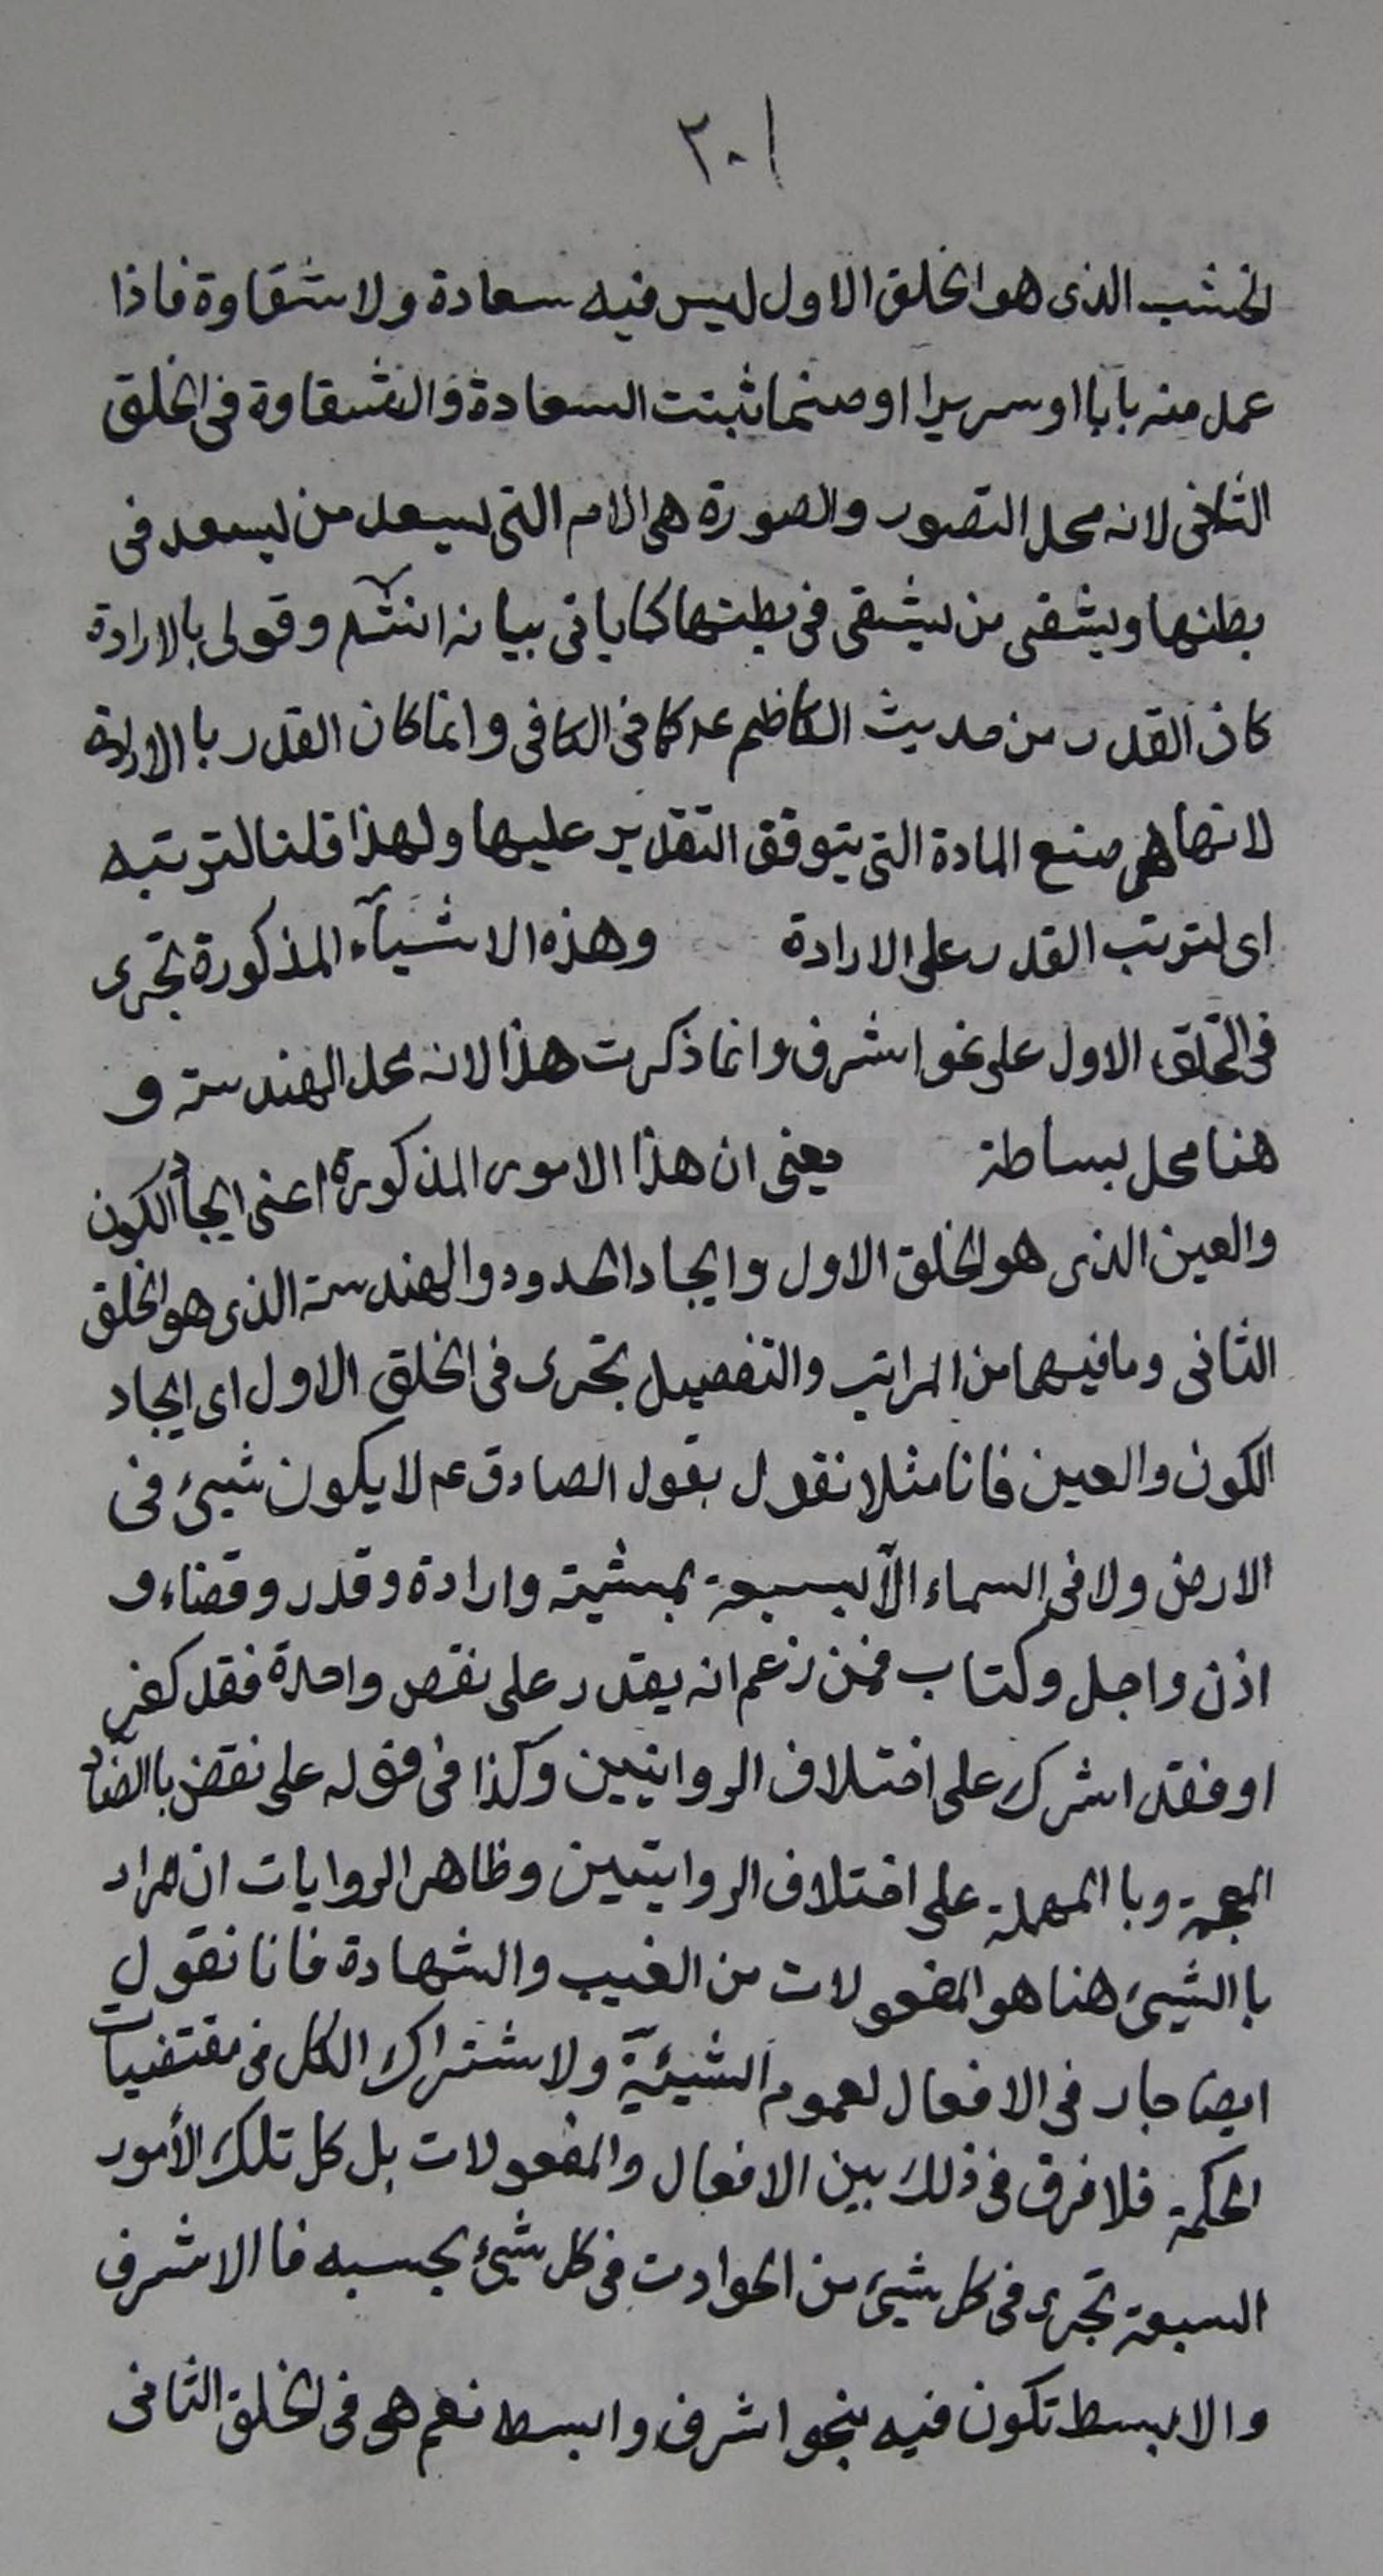 ٣٠١
لخشب الذى هو الخلق الاول ليس فيه سعادة ولا شقاوة فاذا
عمل منه بابا او سريرا او صنما ثبتت السعادة والشقاوة فى الخلق
الثانى لانه محل التصور والصورة هى الام التى يسعد من يسعد فى
بطنها ويشقى من يشقى فى بطنها كما ياتى بيانه انشآء وقولى بالارادة
كان القدر من حديث الكاظم ع كما فى الكافى وانما كان القدر با الارادة
لانها هى صنع المادة التى يتوقف التقدير عليها ولهذا قلنا لترتبه
اى لترتب القدر على الارادة وهذه الاشيآء المذكورة تجرى
فى الخلق الاول على نحو اشرف وانما ذكرت هذا لانه محل الهندسة و
هنا محل بساطة يعنى ان هذا الامور المذكورة اعنى ايجاد الكون
والعين الذى هو الخلق الاول وايجاد الحدود والهندسة الذى هو الخلق
الثانى وما فيهما من المراتب والتفصيل تجرى فى الخلق الاول اى ايجاد
الكون والعين فانا مثلا نقول بقول الصادق ع لا يكون شيئ فى
الارض ولا فى السماء الّا بسبعة بمشية وارادة وقدر وقضاء و
اذن واجل وكتاب فمن زعم انه يقدر على نقص واحدة فقد كفر
او فقد اشرك على اختلاف الروايتين وكذا فى قوله على نقض با الضاد
المعجمة وبا المهملة على اختلاف الروايتين وظاهر الروايات ان المراد
با الشيئ هنا هو المفعولات من الغيب والشهادة فانا نقول
ايضا جار فى الافعال لعموم الشيئية ولاشتراك الكل فى مقتضيات
الحكمة فلا فرق فى ذلك بين الافعال والمفعولات بل كل تلك الأمور
السبعة تجرى فى كل شيئ من الحوادث فى كل شيئ بحسبه فا الاشرف
والابسط تكون فيه بنحو اشرف وابسط نعم هى فى الخلق الثانى